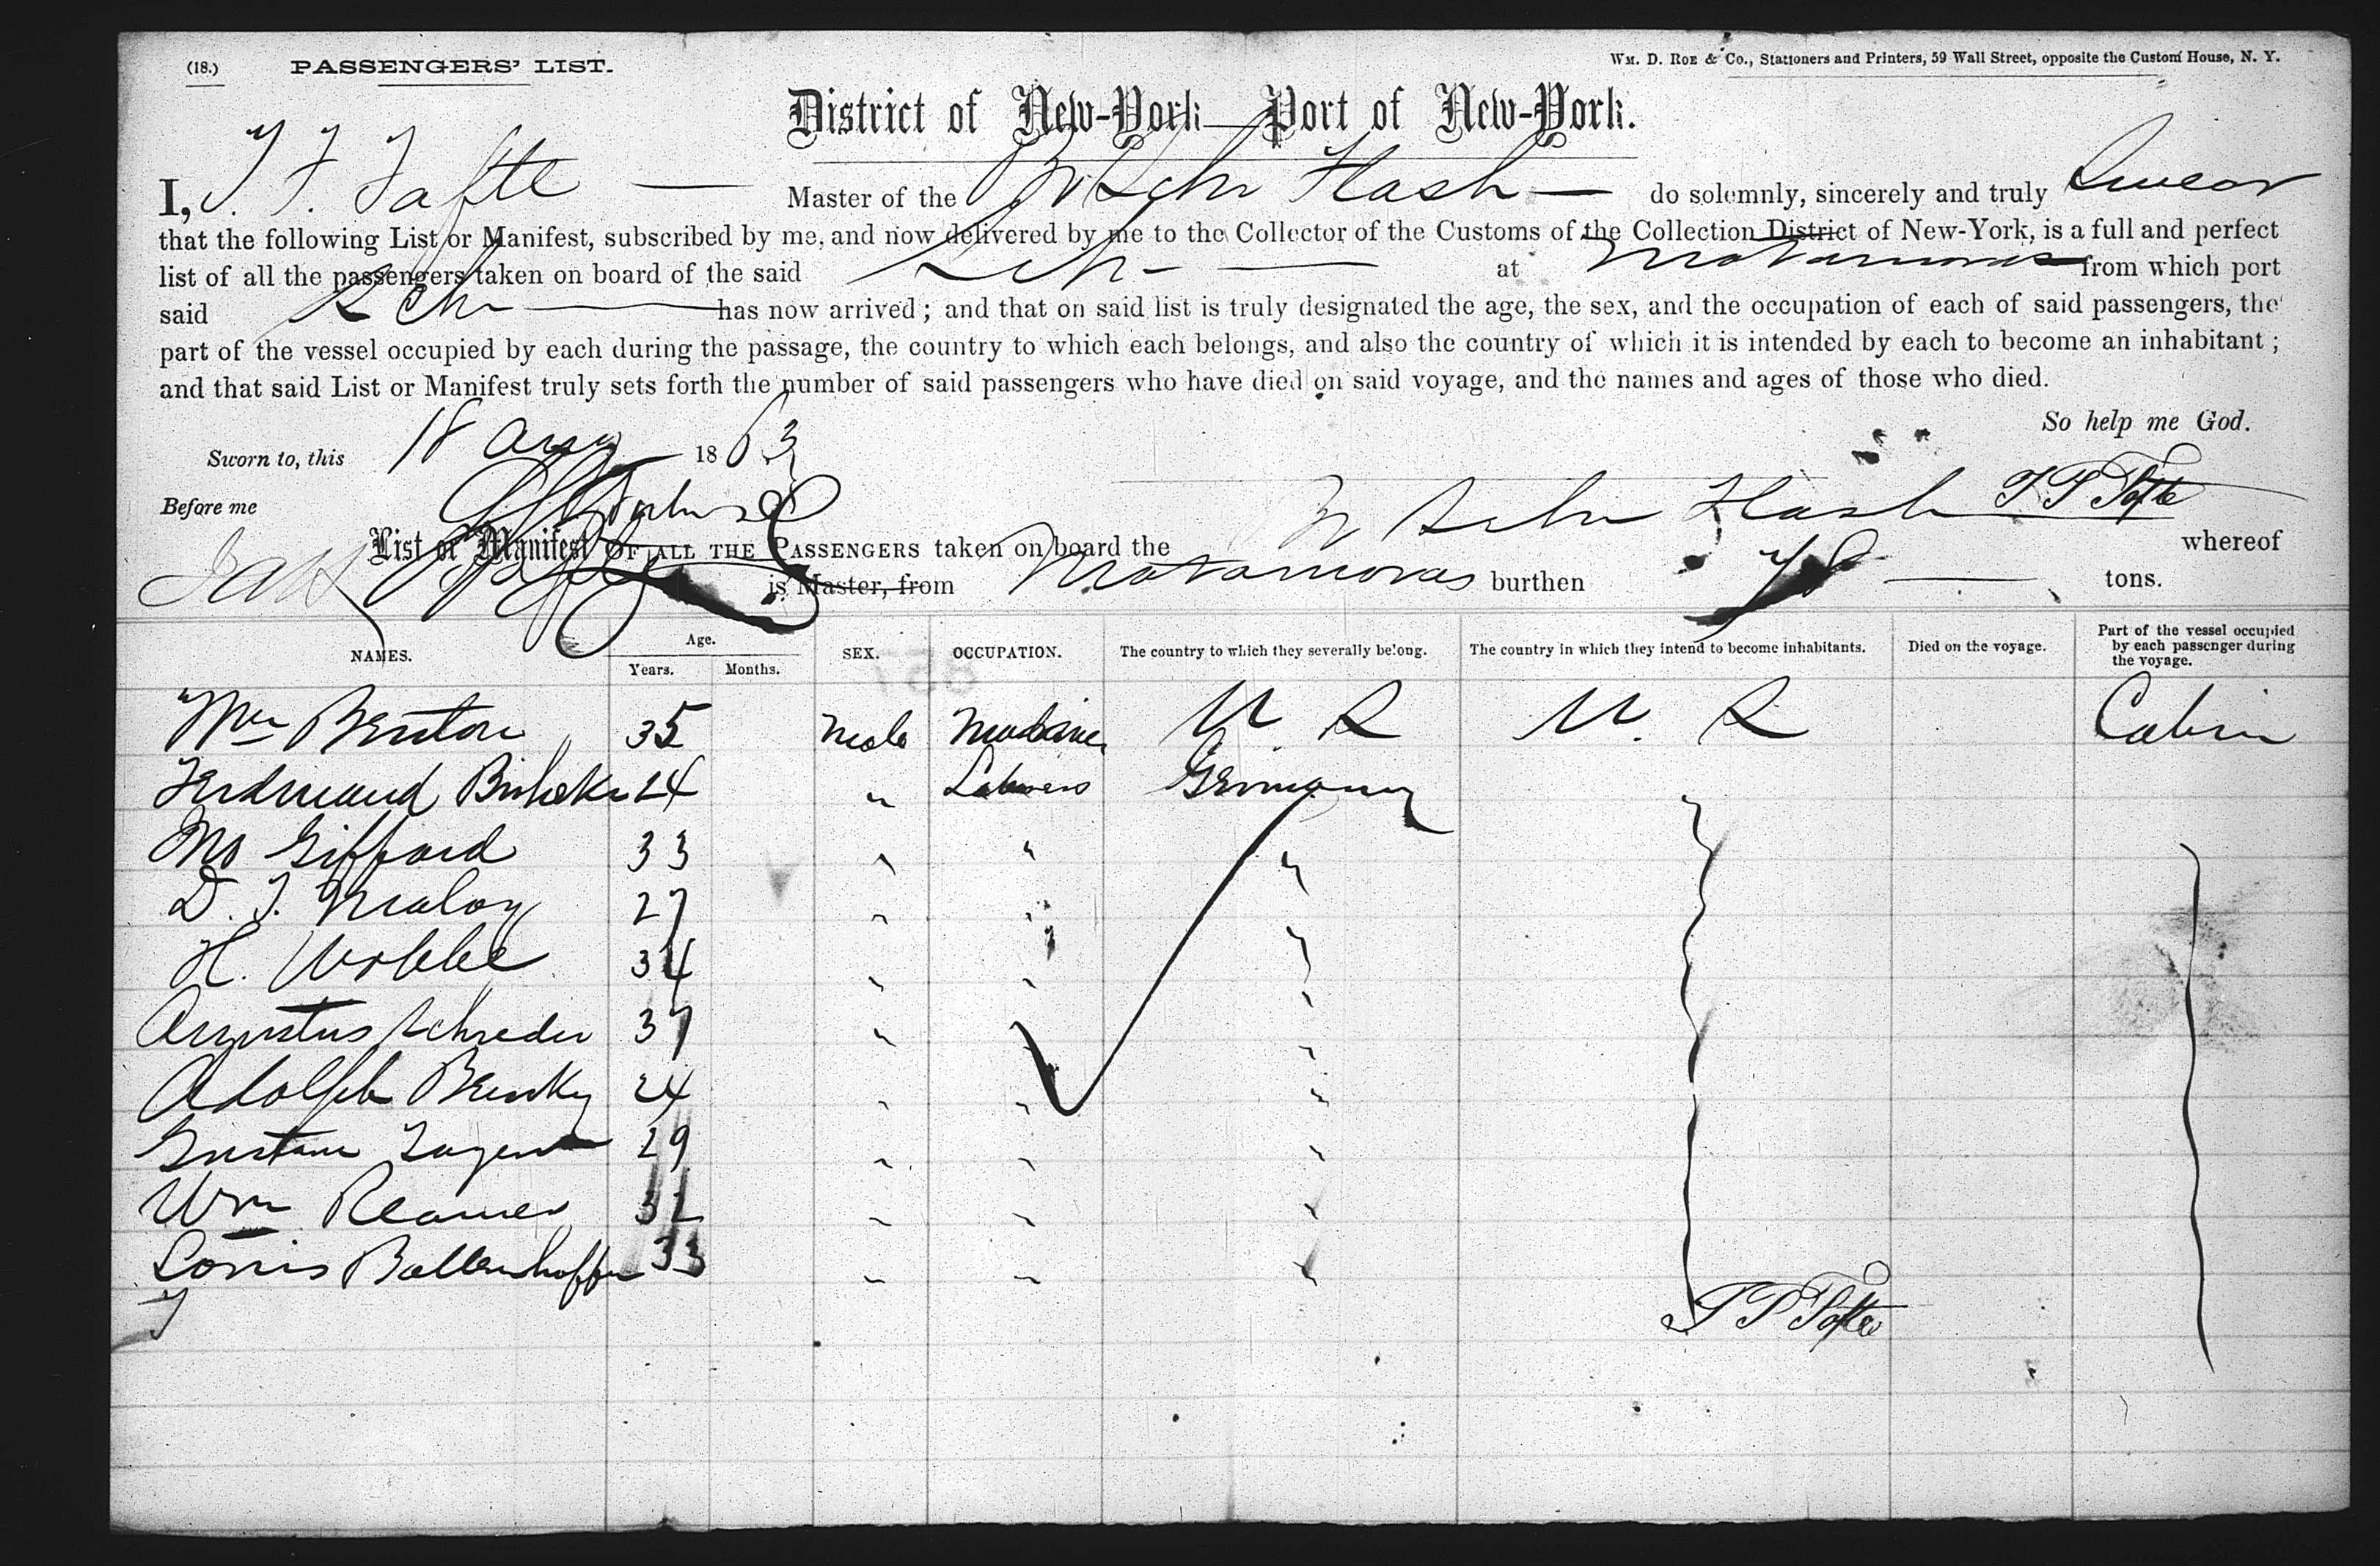 (18.) PASSENGERS' LIST. WM. D. ROE & Co., Stationers and Printers, 59 Wall Street, opposite the Custom House, N. Y.
District of New-York—Port of New-York.
I, Master of the Br Schr Flash do solemnly, sincerely and truly Swear
that the following List or Manifest, subscribed by me, and now delivered by me to the Collector of the Customs of the Collection District of New-York, is a full and perfect
list of all the passengers taken on board of the said Schr at Matamoras from which port
said Schr has now arrived; and that on said list is truly designated the age, the sex, and the occupation of each of said passengers, the
part of the vessel occupied by each during the passage, the country to which each belongs, and also the country of which it is intended by each to become an inhabitant;
and that said List or Manifest truly sets forth the number of said passengers who have died on said voyage, and the names and ages of those who died.
So help me God.
Sworn to, this 18 Aug 1863
Before me T P Tofte
List or Manifest OF ALL THE PASSENGERS taken on board the Br Schr Flash whereof
is Master, from Matamoras burthen 78 tons.
NAMES. Age. Years. Months. SEX. OCCUPATION. The country to which they severally belong. The country in which they intend to become inhabitants. Died on the voyage. Part of the vessel occupied by each passenger during the voyage.
Wm Benton 35 Male U. S U. S Cabin
Ferdinand 24 " Laborers Germany
Gifford 33 " " "
D. T. Maloy 27 " " "
H. Wobbe 34 " " "
Augustus Schreder 37 " " "
Adolph 24 " " "
Gustave 29 " " "
Wm Reamer 32 " " "
Louis Ballenhoffer 33 " " "
T P Tofte